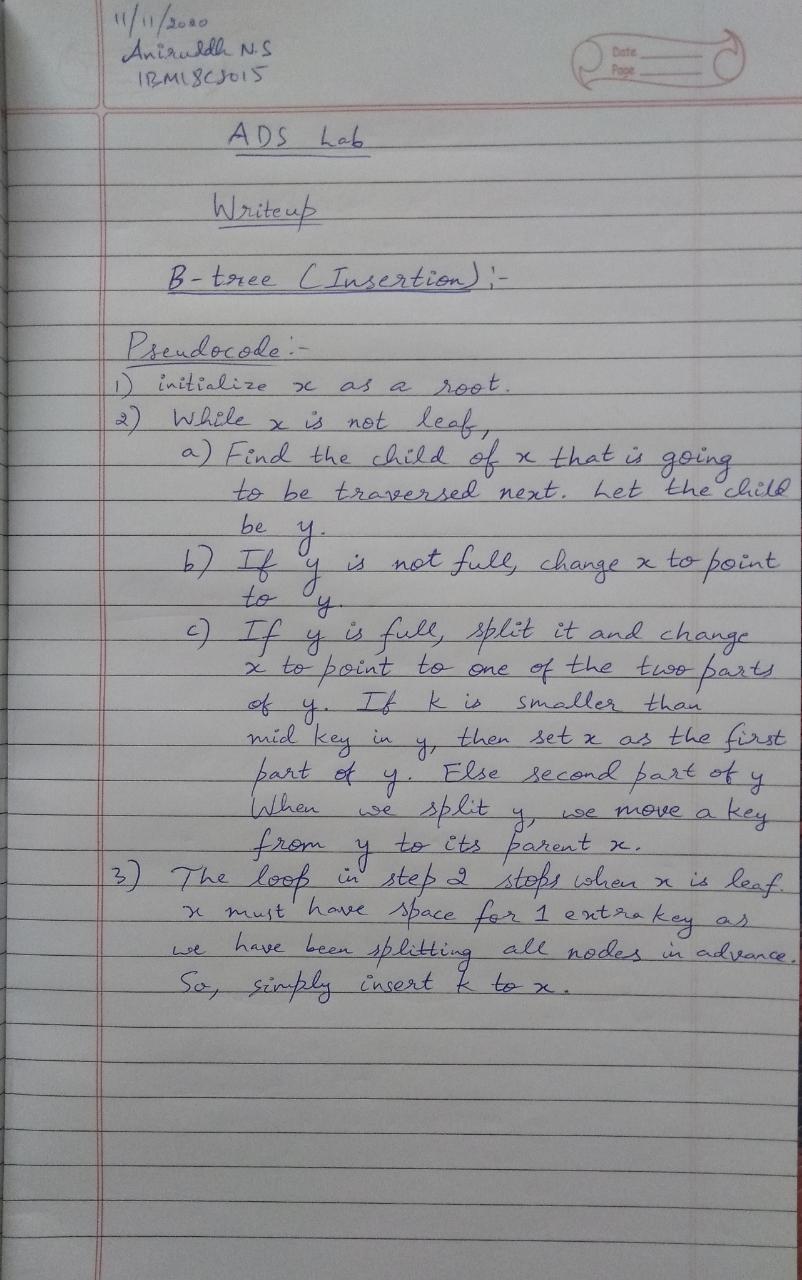 11/11/2020
Aniruddh N.S
1BM18CS015
Date
Page
ADS Lab
Writeup
B-tree (Insertion):-
Pseudocode:-
1) initialize x as a root.
2) While x is not leaf,
a) Find the child of x that is going
to be traversed next. Let the child
be y.
b) If y is not full, change x to point
to y.
c) If y is full, split it and change
x to point to one of the two parts
of y. If k is smaller than
mid key in y, then set x as the first
part of y. Else second part of y
When we split y, we move a key
from y to its parent x.
3) The loop in step 2 stops when x is leaf.
x must have space for 1 extra key as
we have been splitting all nodes in advance.
So, simply insert k to x.